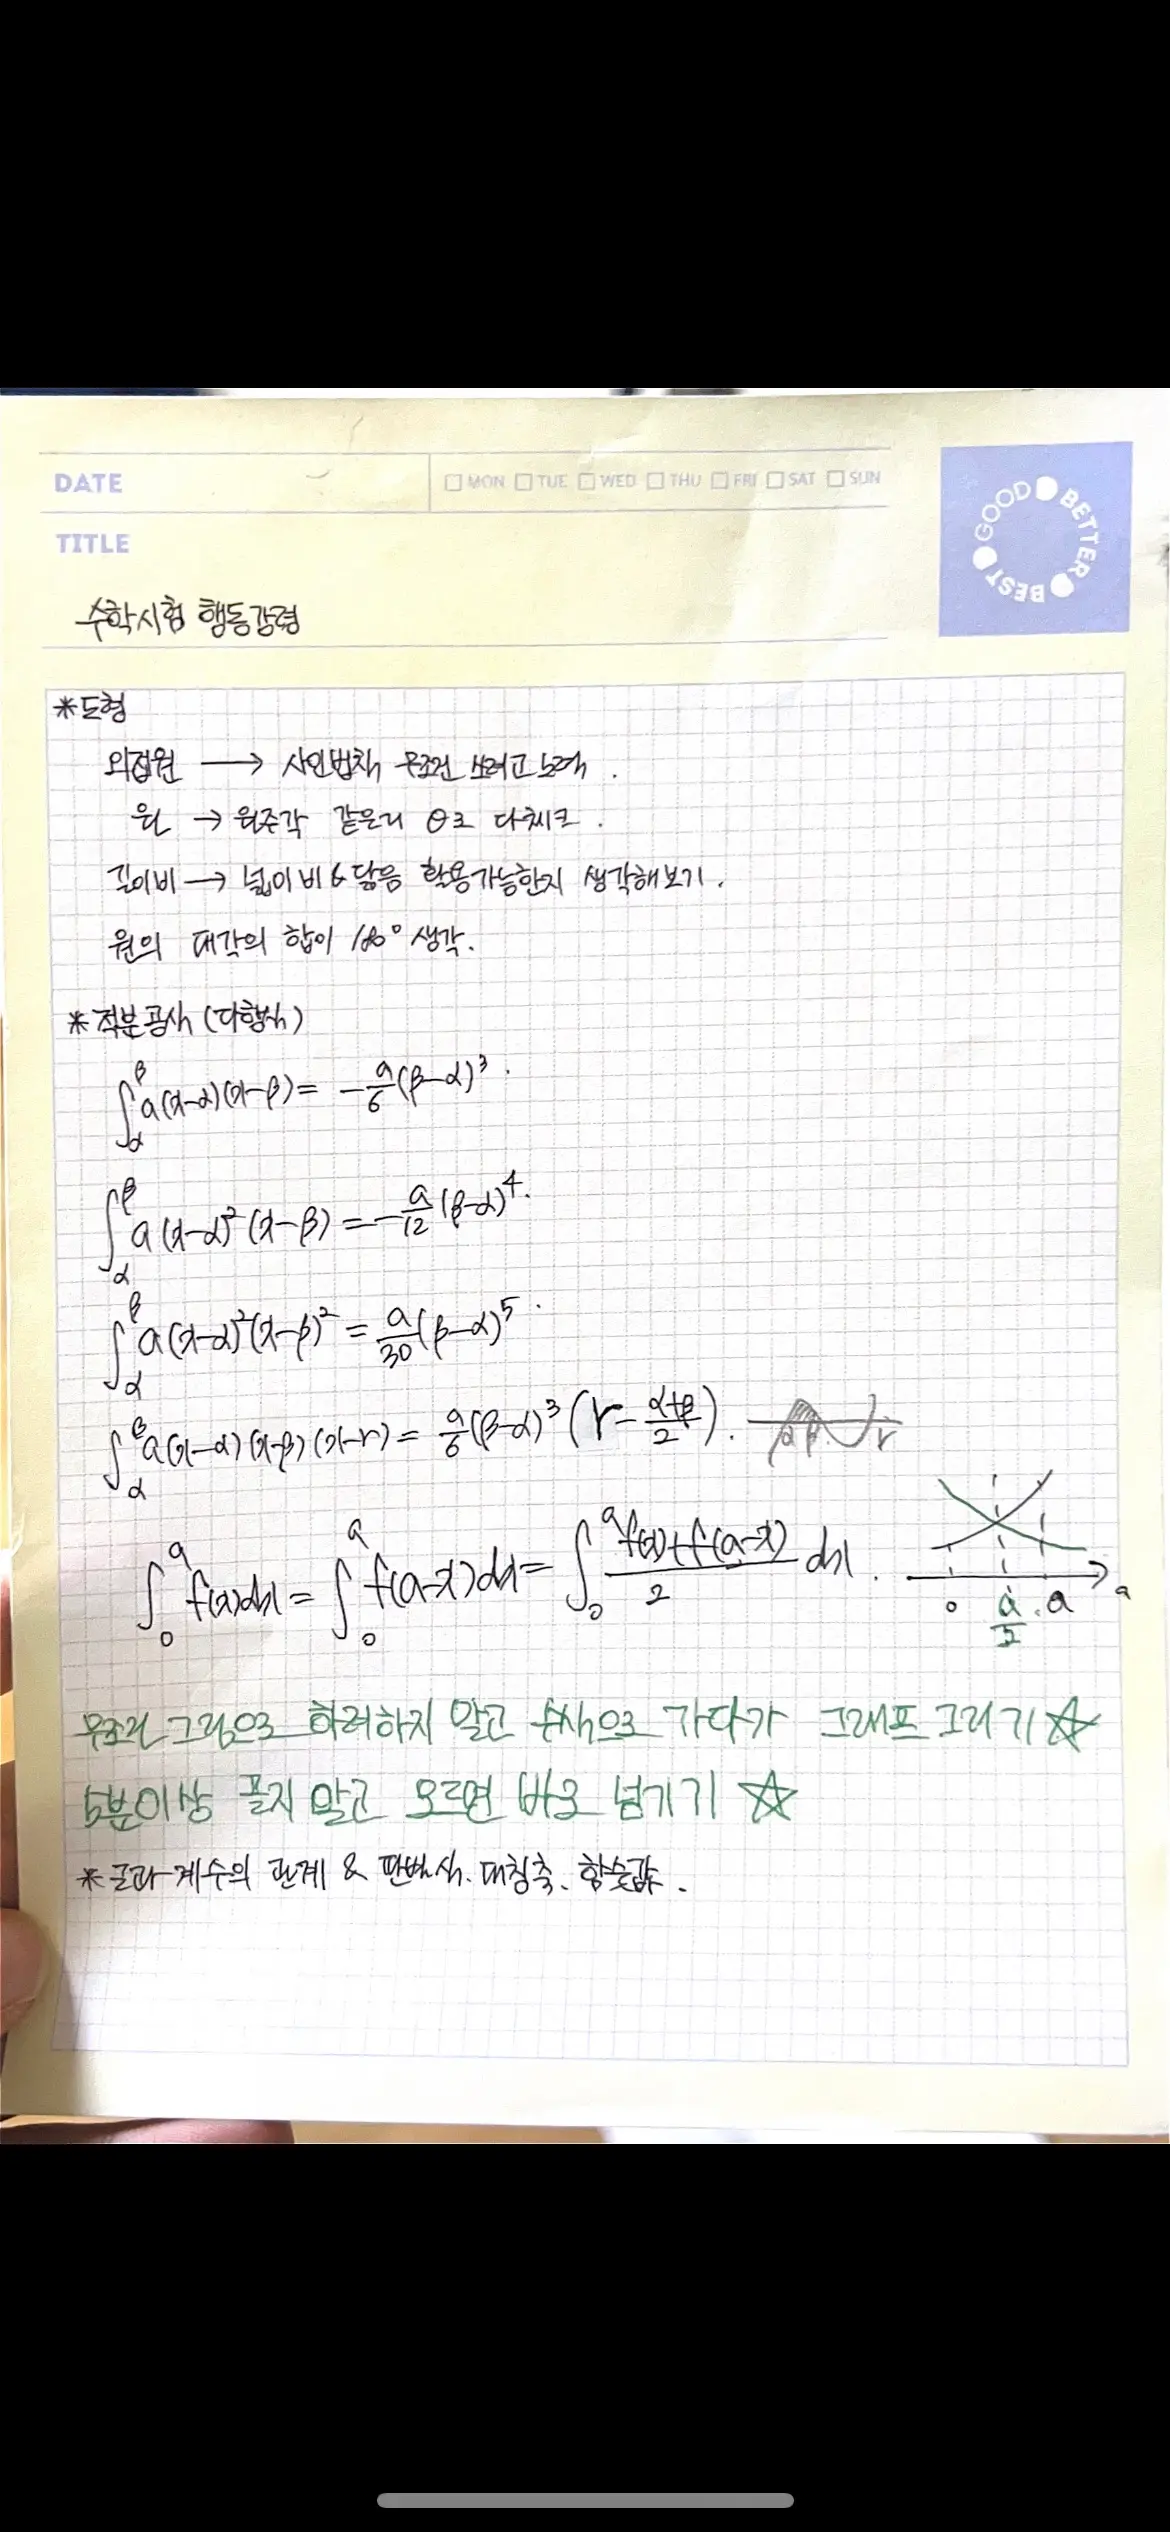 DATE
□ MON □ TUE □ WED □ THU □ FRI □ SAT □ SUN
GOOD BETTER BEST
TITLE
수학시험 행동강령
*도형
외접원 → 사인법칙 무조건 쓰려고 노력.
원 → 원주각 같은거 θ로 다 체크.
길이비 → 넓이비 & 닮음 활용가능한지 생각해보기.
원의 대각의 합이 180° 생각.
*적분공식 (다항식)
∫_α^β a(x-α)(x-β) = -a/6(β-α)³.
∫_α^β a(x-α)²(x-β) = -a/12(β-α)⁴.
∫_α^β a(x-α)²(x-β)² = a/30(β-α)⁵.
∫_α^β a(x-α)(x-β)(x-r) = a/6(β-α)³(r-(α+β)/2). α β r
∫_0^a f(x)dx = ∫_0^a f(a-x)dx = ∫_0^a (f(x)+f(a-x))/2 dx. 0 a/2 a
무조건 그림으로 하려하지 말고 수식으로 가다가 그래프 그리기 ☆
5분이상 풀지 말고 모르면 바로 넘기기 ☆
*근과 계수의 관계 & 판별식. 대칭축. 함숫값.